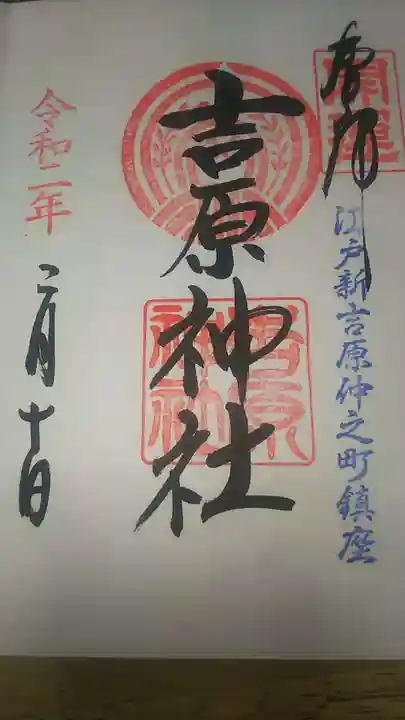 奉拝
開運
江戸新吉原仲之町鎮座
吉原神社
吉原神社
令和二年
二月十日